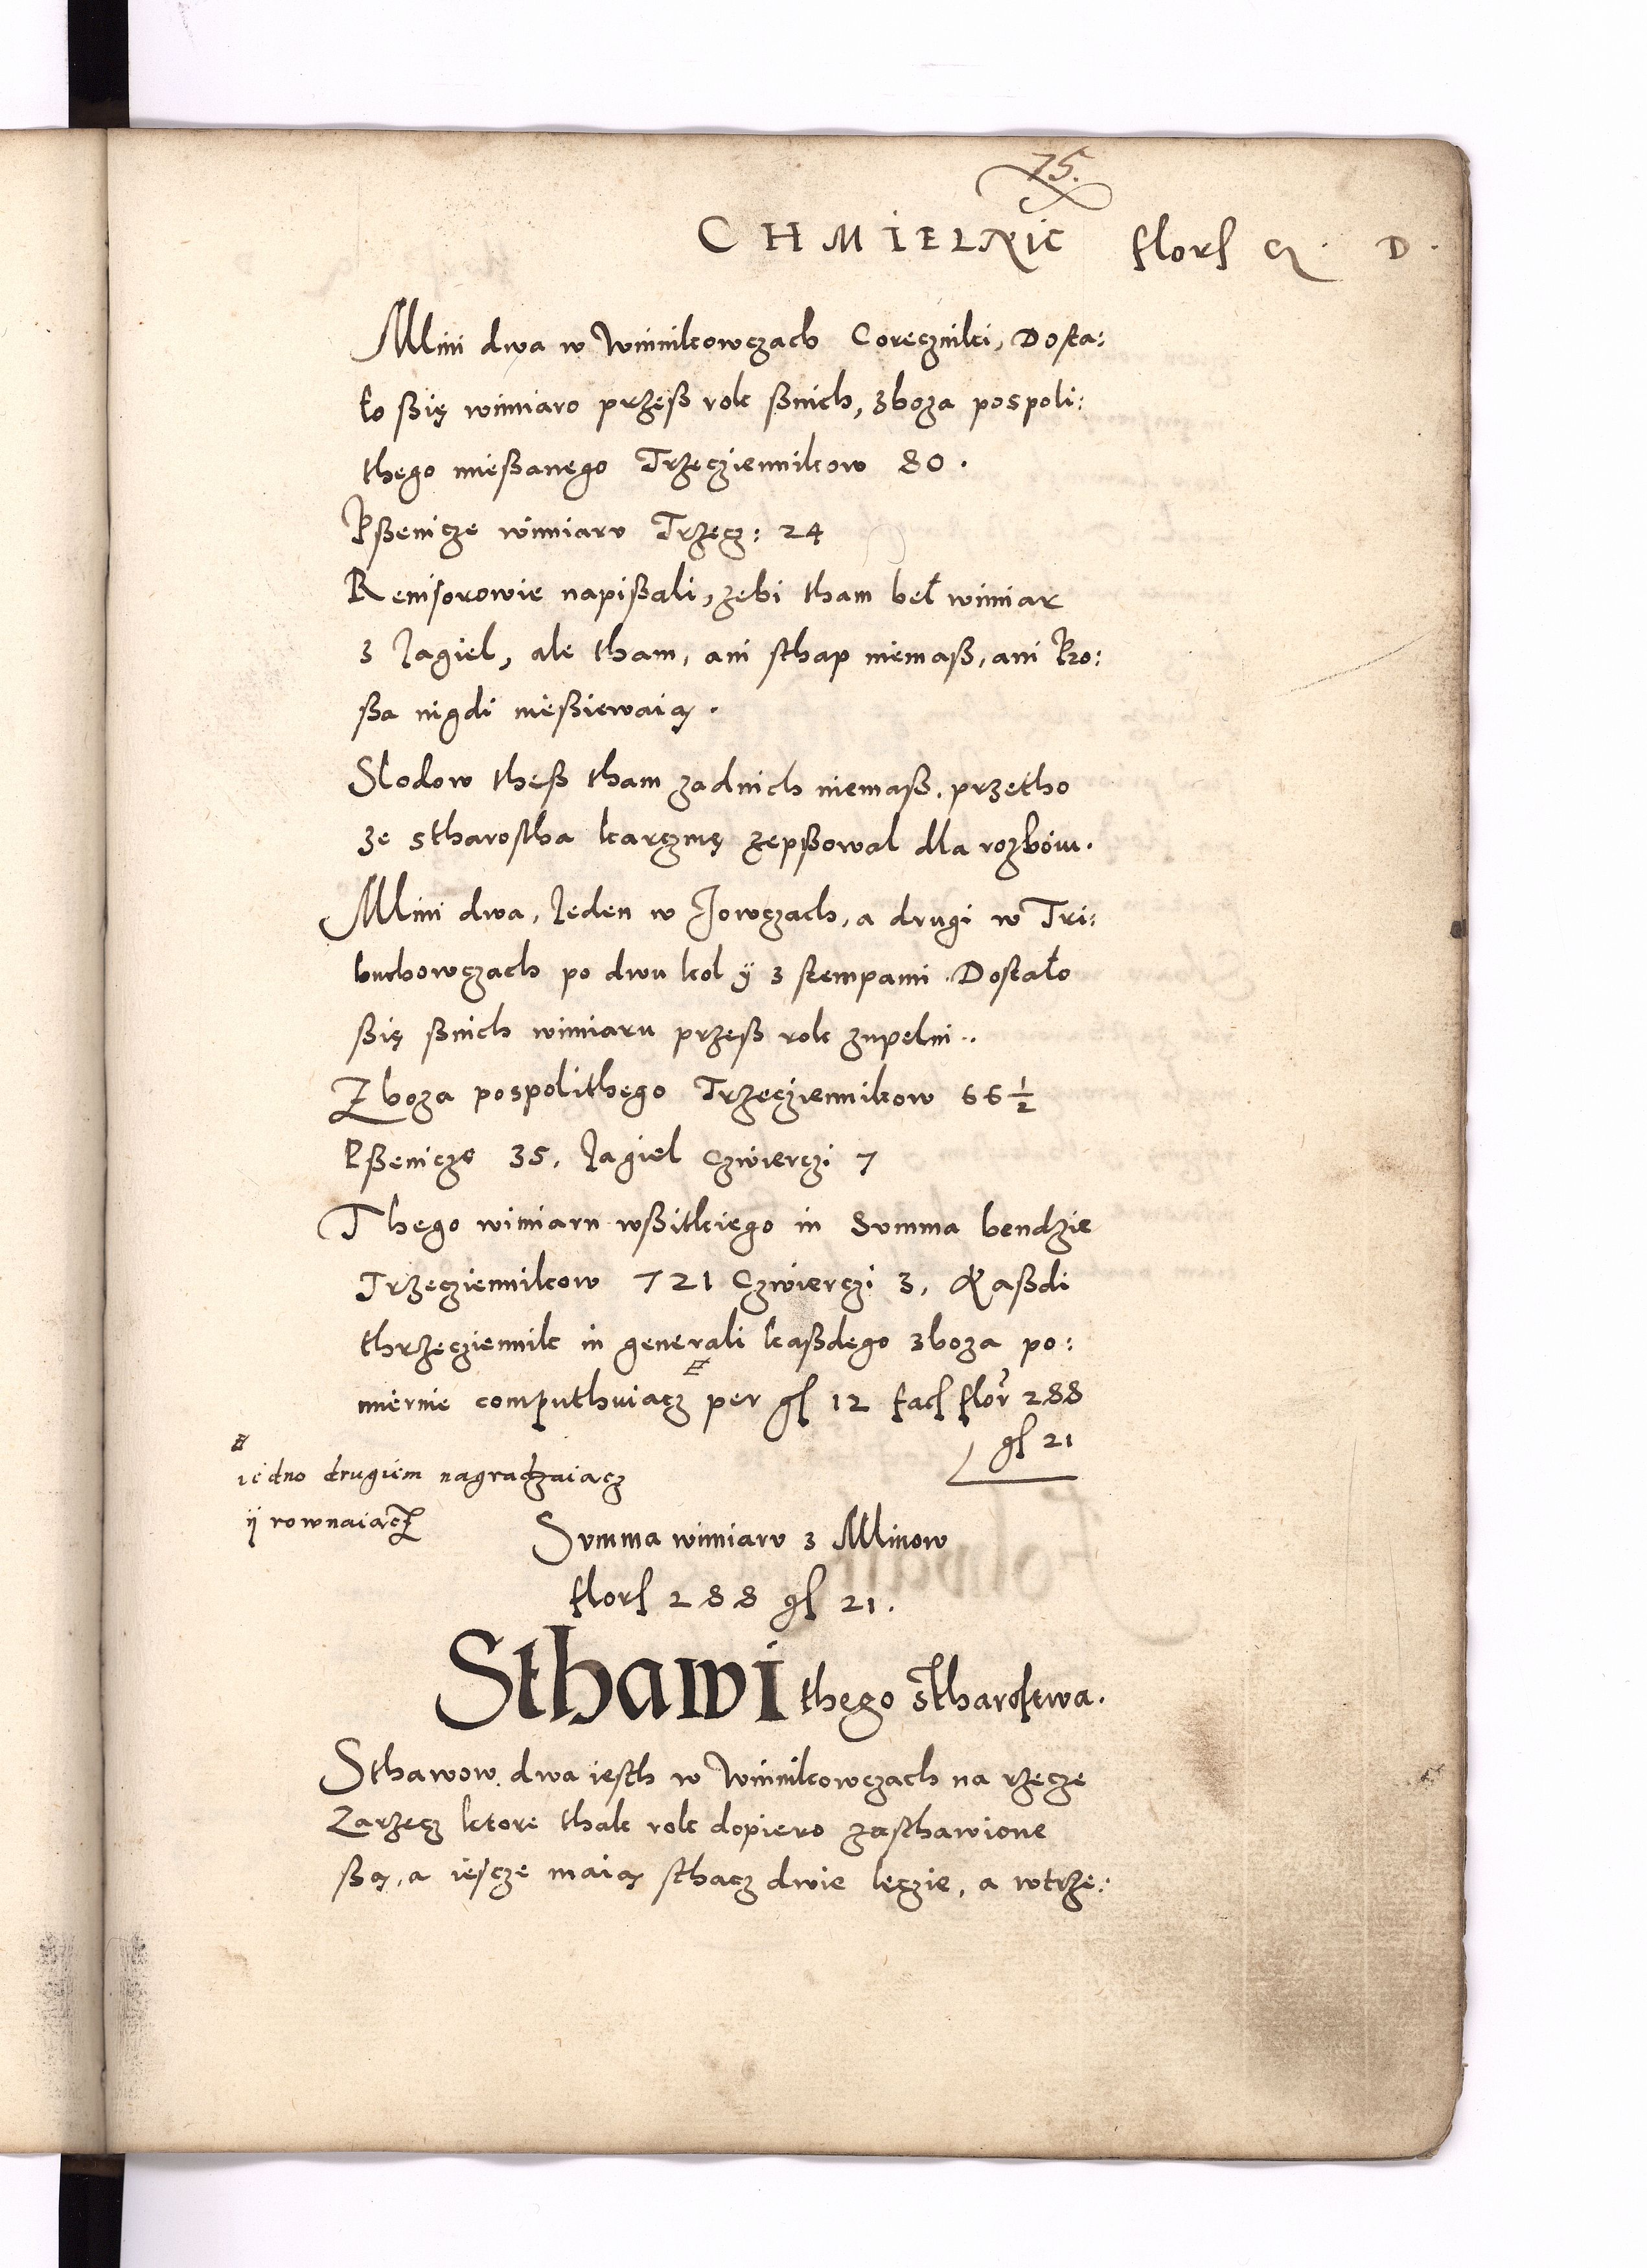 75.
CHMIELNIC florſ gſ D.
Mlini dwa w Winnikowczach Coreczniki, Dosta:
ło ßię wimiaro przeß rok ßnich, zboza pospoli:
thego mießanego Trzeciennikow 80.
Pßenicze wimiaru Trzecz: 24
Revisorowie napißali, zebi tham beł wimiar
z Jagiel, ale tham, ani sthap niemaß, ani Pro:
ßa nigdi nießiewaią.
Slodow theß tham zadnich niemaß. przetho
ze stharostha karczmę zepßowal dla rozboiu.
Mlini dwa, Jeden w Jowczach, a drugi w Tri:
buchowczach po dwu kol ÿ z stempami. Dostało
ßię ßnich wimiaru przeß rok zupelni..
Zboza pospolithego Trzecziennikow 66 ½
Pßenicze 35, Jagiel Czwierczi 7
Thego wimiaru wßitkiego in Summa bendzie
Trzecziennikow 721 Czwierczi 3, Kaßdi
thrzecziennik in generali kaßdego zboza po:
miernie computhuiącz per gſ 12 facſ flor 288
gſ 21
iedno drugiem nagradzaiącz
ÿ rownaiącz
Summa wimiaru z Mlinow
florſ 288 gſ 21.
Sthawi thego stharostwa.
Sthawow dwa iesth w Winnikowczach na rzecze
Zarzecz ktore thak rok dopiero zasthawione
ßą, a iescze maią sthacz dwie lęczie, a wtrze: